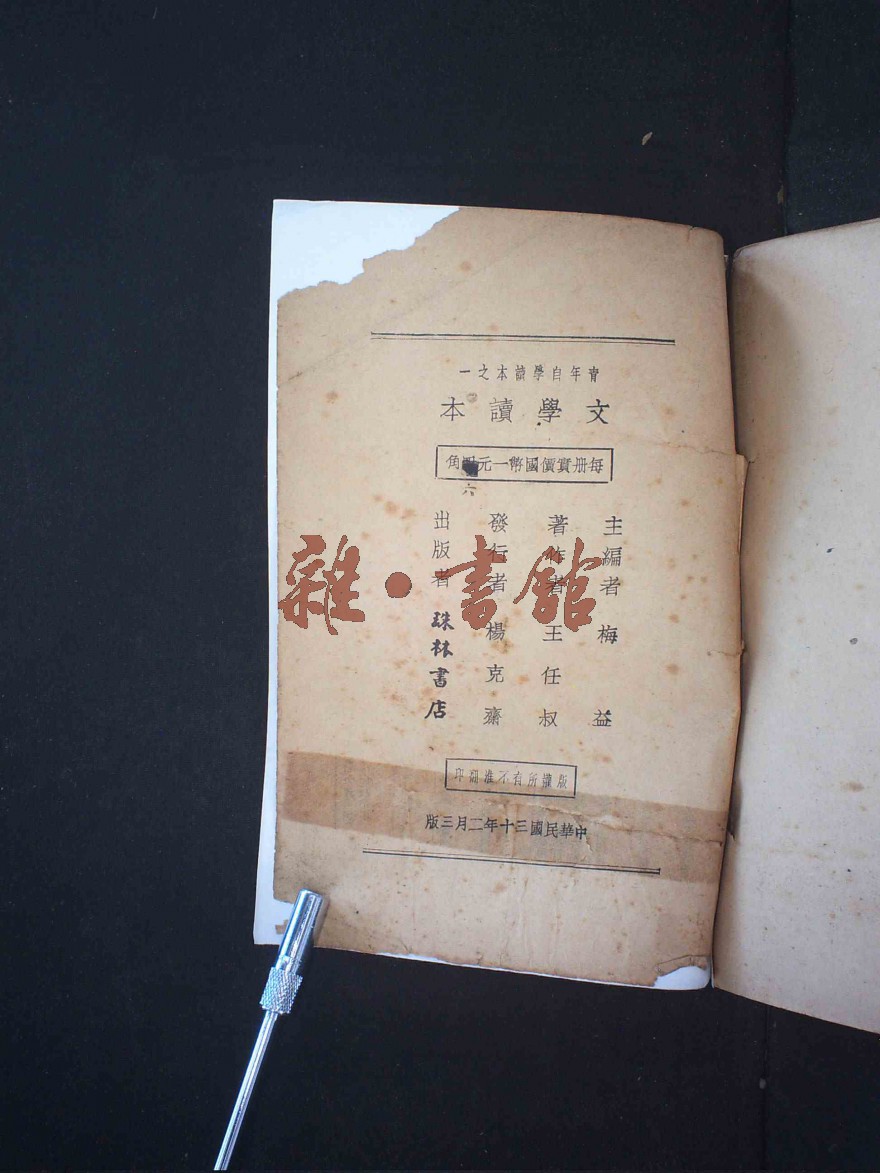 青年自學讀本之一
文學讀本
每册實價國幣一元四角
六
主編者 梅 益
著作者 王任叔
發行者 楊克齋
出版者 珠林書店
版權所有不准翻印
中華民國三十年二月三版
雜·書館